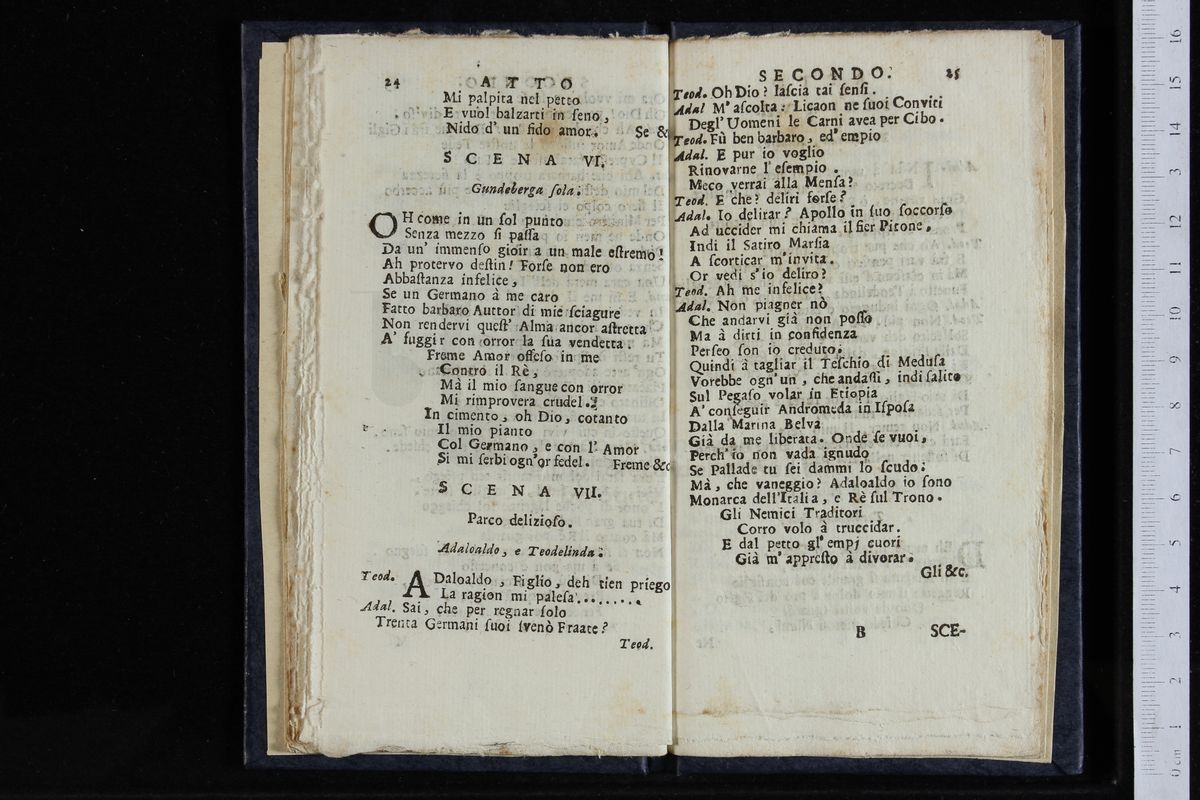 24 ATTO
Mi palpita nel petto
E vuol balzarti in ſeno,
Nido d' un fido amor. Se &
SCENA VI.
Gundeberga ſola.
OH come in un ſol punto
Senza mezzo ſi paſſa
Da un' immenſo gioir a un male eſtremo!
Ah protervo deſtin! Forſe non ero
Abbaſtanza infelice,
Se un Germano à me caro
Fatto barbaro Auttor di mie ſciagure
Non rendervi queſt' Alma ancor aſtretta
A' fuggir con orror la ſua vendetta.
Freme Amor offeſo in me
Contro il Rè,
Mà il mio ſangue con orror
Mi rimprovera crudel.
In cimento, oh Dio, cotanto
Il mio pianto
Col Germano, e con l' Amor
Si mi ſerbi ogn'or fedel. Freme &c
SCENA VII.
Parco delizioſo.
Adaloaldo, e Teodelinda.
Teod. ADaloaldo, Figlio, deh tien priego
La ragion mi paleſa.........
Adal. Sai, che per regnar ſolo
Trenta Germani ſuoi ſvenò Fraate?
Teod.
SECONDO. 25
Teod. Oh Dio? laſcia tai ſenſi.
Adal M' aſcolta: Licaon ne ſuoi Conviti
Degl' Uomeni le Carni avea per Cibo.
Teod. Fù ben barbaro, ed' empio
Adal. E pur io voglio
Rinovarne l' eſempio.
Meco verrai alla Menſa?
Teod. E che? deliri forſe?
Adal. Io delirar? Apollo in ſuo ſoccorſo
Ad uccider mi chiama il fier Pitone,
Indi il Satiro Marſia
A ſcorticar m'invita.
Or vedi s'io deliro?
Teod. Ah me infelice?
Adal. Non piagner nò
Che andarvi già non poſſo
Ma à dirti in confidenza
Perſeo ſon io creduto:
Quindi à tagliar il Teſchio di Meduſa
Vorebbe ogn'un, che andaſſi, indi ſalito
Sul Pegaſo volar in Etiopia
A' conſeguir Andromeda in Iſpoſa
Dalla Marina Belva
Già da me liberata. Onde ſe vuoi,
Perch'io non vada ignudo
Se Pallade tu ſei dammi lo ſcudo:
Mà, che vaneggio? Adaloaldo io ſono
Monarca dell'Italia, e Rè ſul Trono.
Gli Nemici Traditori
Corro volo à truccidar.
E dal petto gl' empj cuori
Già m' appreſto à divorar.
Gli &c.
B SCE-